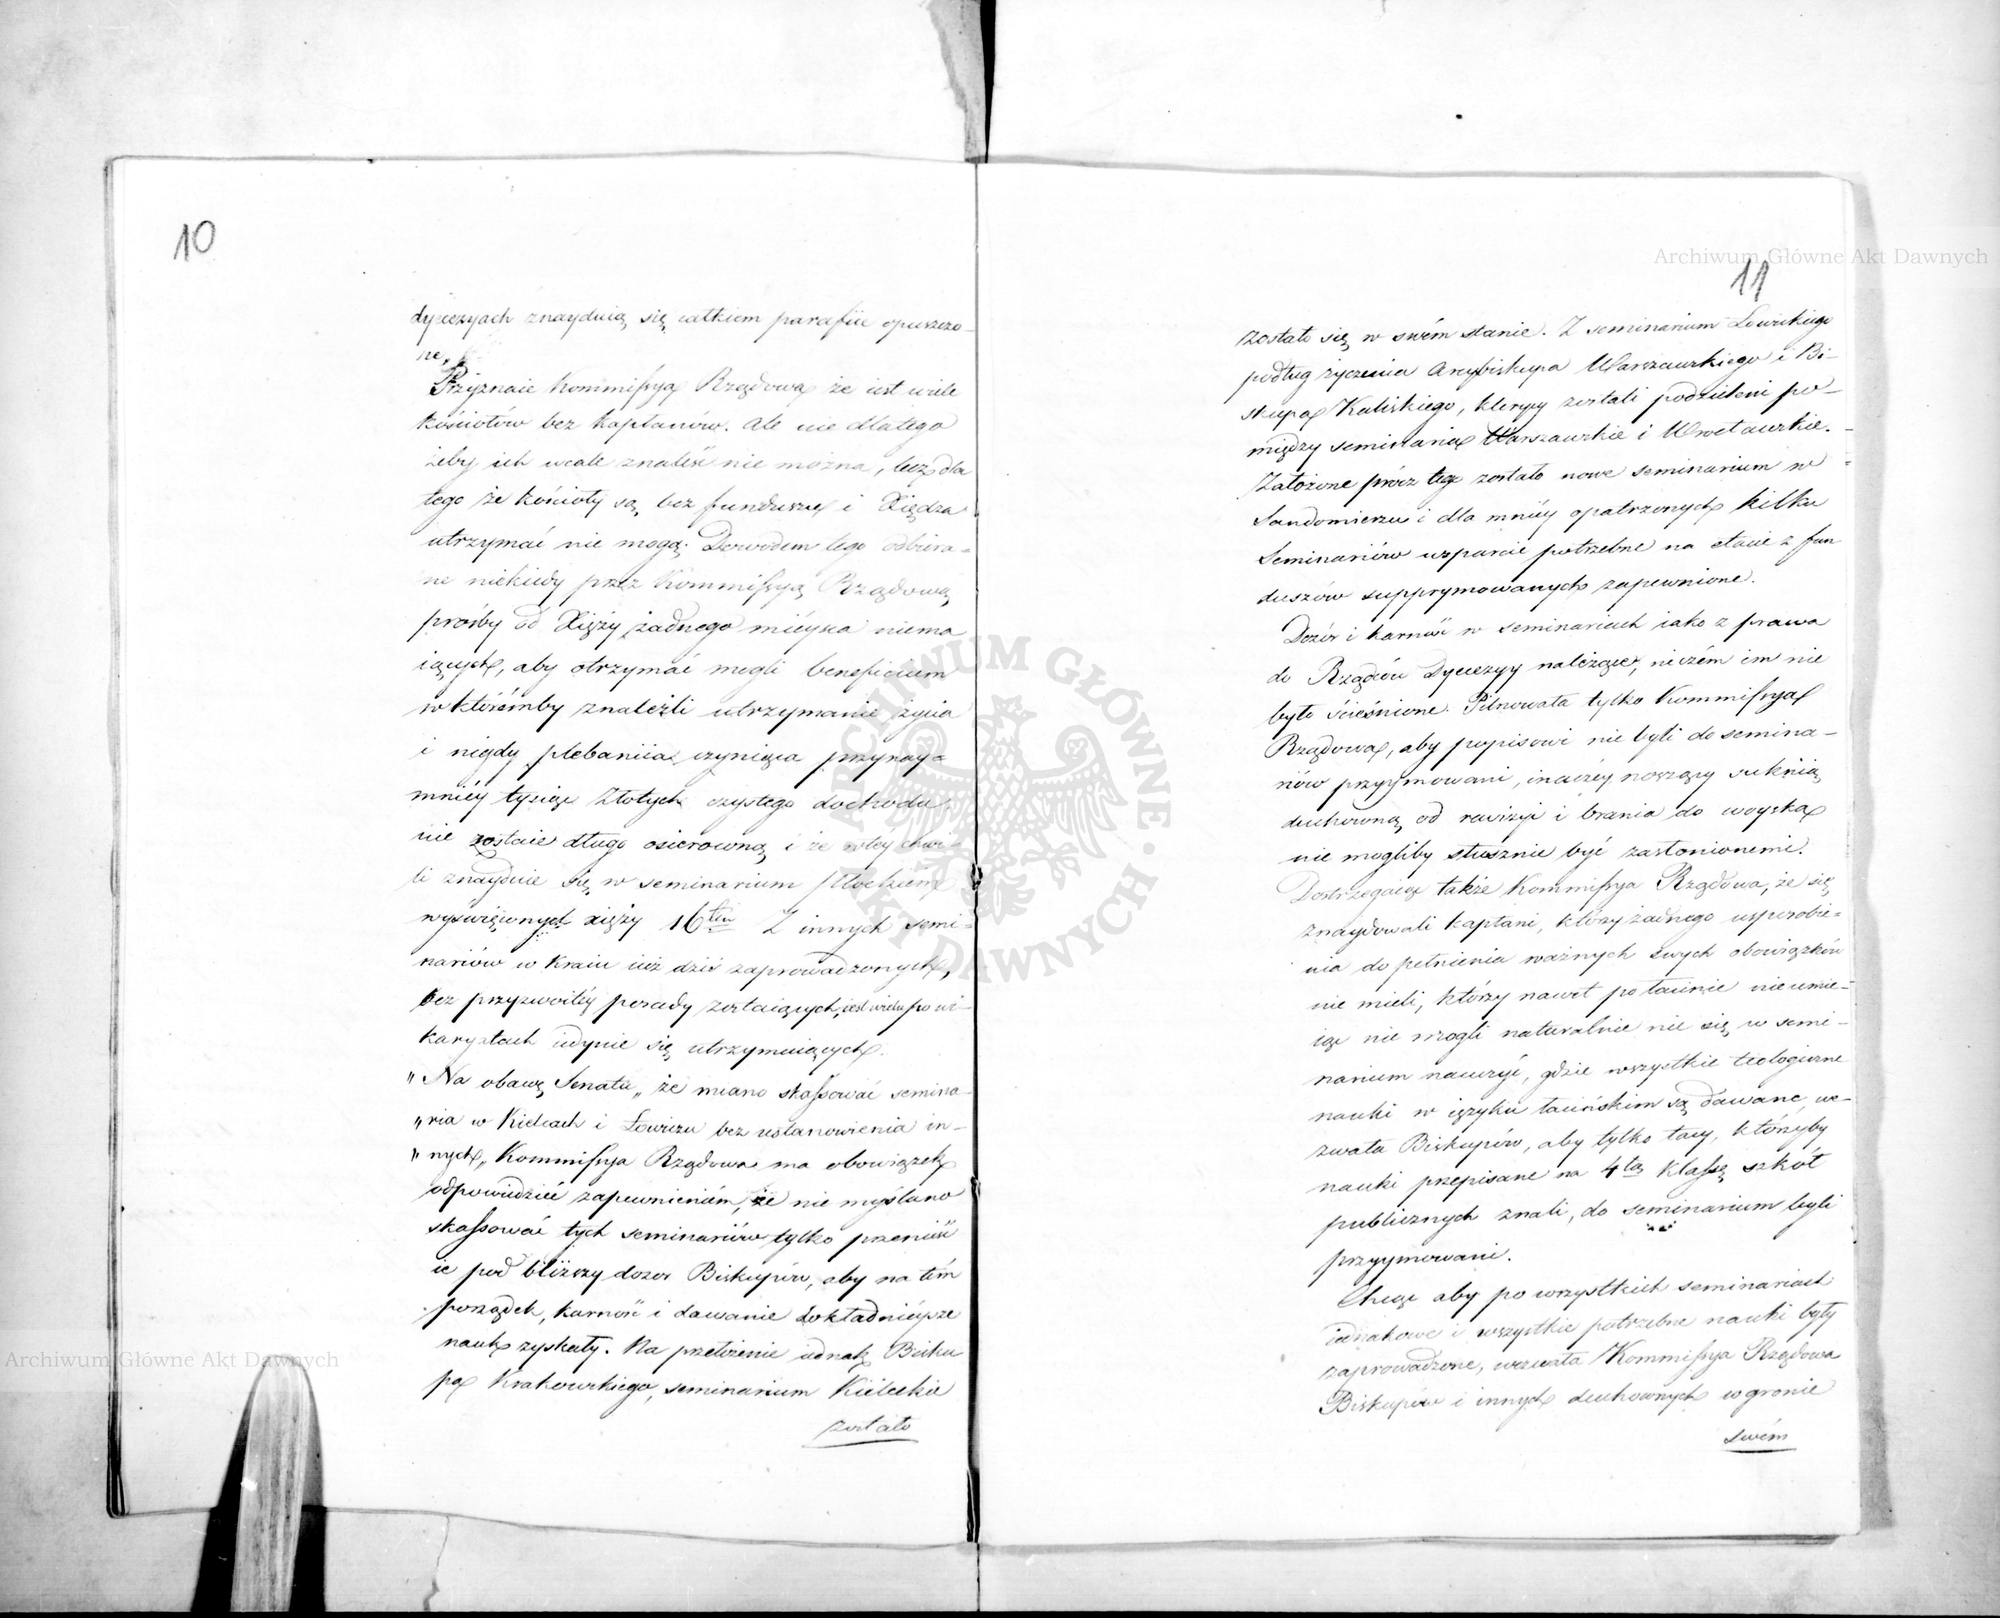 10
dyecezyach znayduią się całkiem parafiie opuszczo-
ne.
Przyznaie Kommissyą Rządową że iest wiele
kościołów bez kapłanów. Ale nie dlatego
żeby ich wcale znaleść nie można, lecz dla
tego że kościoły są bez funduszu i Xiędza
utrzymać nie mogą. Dowodem tego odbiera-
ne niekiedy przez Kommissyą Rządową
prośby od Xięży żadnego mieysca niema
iących, aby otrzymać mogli beneficium
w któremby znaleźli utrzymanie życia
i nigdy plebaniia czyniąca przynay-
mniéy tysiąc złotych czystego dochodu
nie zostaie długo osieroconą i że w téy chwi-
li znayduie się w seminarium Płockiem
wyswięconych xięży 16tu Z innych semi-
nariów w kraiu iuż dziś zaprowadzonych,
bez przyzwoitéy posady zostaiących, iest wielu po wi-
karyatach iedynie się utrzymuiących.
" Na obawę Senatu „ że miano skassować semina-
" ria w Kielcach i Łowiczu bez ustanowienia in-
" nych „ Kommissya Rządowa ma obowiązek
odpowiedzieć zapewnieniém, że nie myślano
skassować tych seminariów tylko przenieść
ie pod bliższy dozor Biskupów, aby na tém
porządek, karność i dawanie dokładnieysze
nauk zyskały. Na przełożenie iednak Bisku
pa Krakowskiego, seminarium Kieleckie
zostało
Archiwum Główne Akt Dawnych
11
zostało się w swém stanie. Z seminarium Łowickiego
podług życzenia Arcybiskupa Warszawskiego i Bi-
skupa Kaliskiego, klerycy zostali podzieleni po-
między seminaria Warszawskie i Wrocławskie.
Założone prócz tego zostało nowe seminarium w
Sandomierzu i dla mniéy opatrzonych kilku
Seminariów wsparcie potrzebne na etacie z fun
duszów supprymowanych zapewnione.
Dozór i karność w seminariach iako z prawa
do Rządców Dyecezyy należące, niczém im nie
było ścieśnione. Pilnowała tylko Kommissya
Rządowa, aby popisowi nie byli do semina-
riów przyymowani, inaczéy noszący suknią
duchowną od rewizyi i brania do woyska
nie mogliby słusznie być zasłonionemi.
Dostrzegaiąc także Kommissya Rządowa, że się
znaydowali kapłani, którzy żadnego usposobie-
nia do pełnienia ważnych swych obowiązków
nie mieli, którzy nawet po łacinie nieumie-
iąc nie mogli naturalnie nic się w semi-
narium nauczyć, gdzie wszystkie teologiczne
nauki w ięzyku łacińskim są dawane, we-
zwała Biskupów, aby tylko tacy, którzyby
nauki przepisane na 4tą klassę szkół
publicznych znali, do seminarium byli
przyymowani.
Chcąc aby po wszystkich seminariach
iednakowe i wszystkie potrzebne nauki były
zaprowadzone, wezwała Kommissya Rządowa
Biskupów i innych duchownych w gronie
swém
Archiwum Główne Akt Dawnych
ARCHIWUM GŁÓWNE AKT DAWNYCH